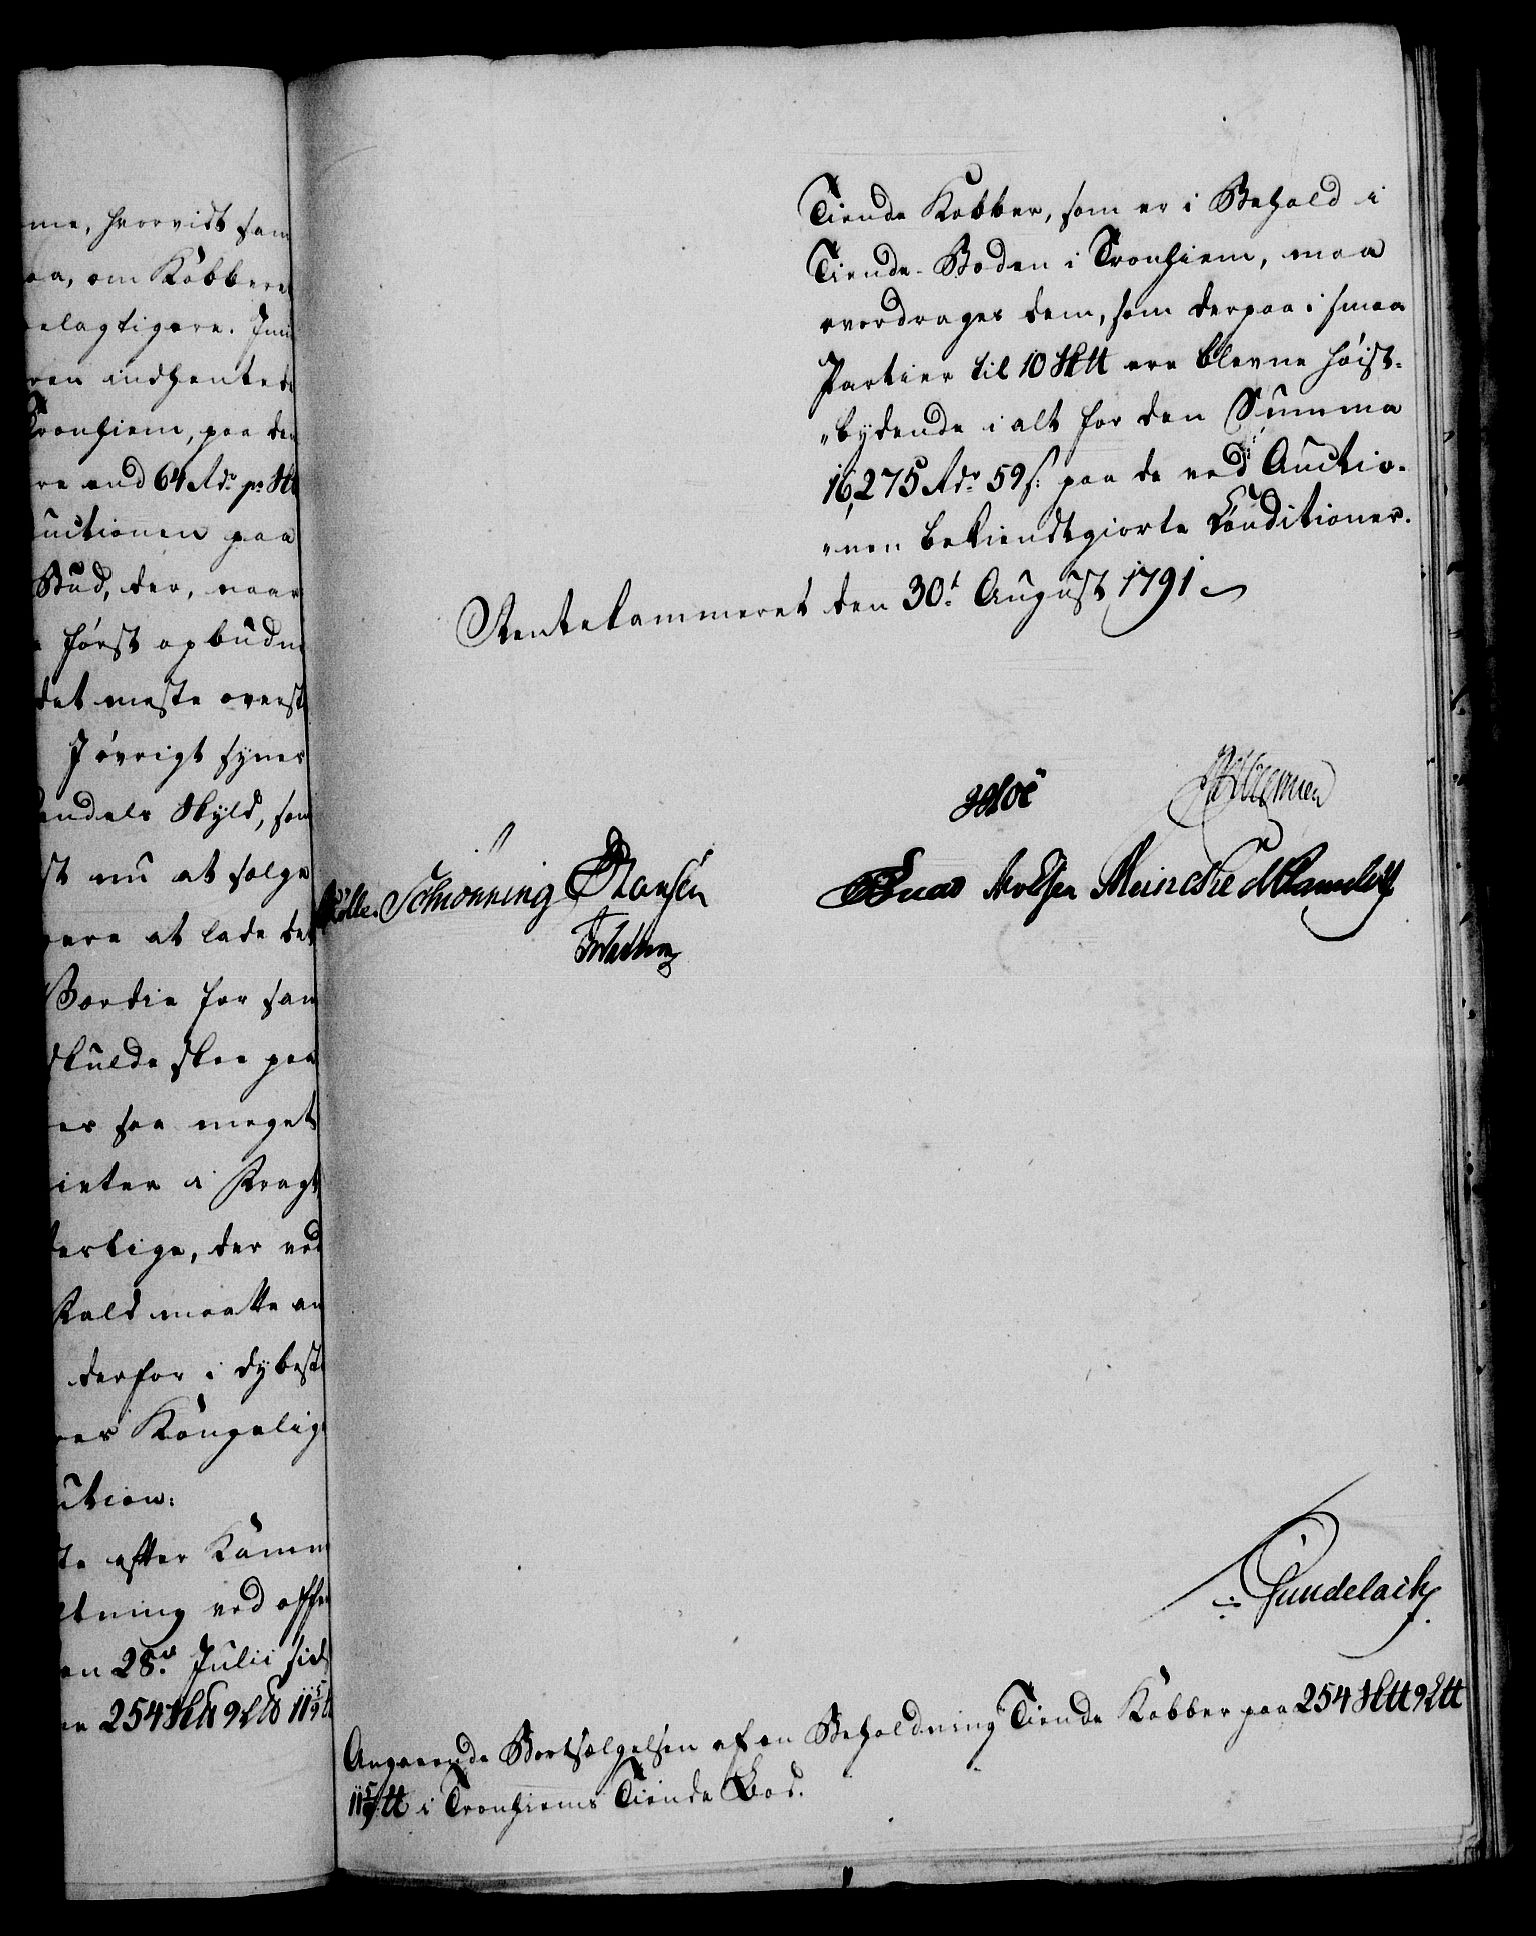 me, hvorvidt sam
aa, om Kobberet
elagtigere. Imid
ren indhentede
Tronhiem, paa den
re end 64 Rdr pr St
uctionen paa
Bud, der, naar
først opbudne
det meste overst
J øvrigt synes
andels Skyld, som
st nu at sælge
være at lade det
Værdie for sam
skulde skee paa
er saa meget
inter i Fragt
erlige, der ved
Fald maatte an
derfor i dybest
res Kongelig
ution:
te efter Kamm
ltning ved offe
en 28de Julii sid
en 254 Stt 9 Ltt 11 5/9 tt
Tiende Kobber, som er i Behold i
Tiende-Boden i Tronhiem, maa
overdrages dem, som derpaa i smaa
Partier til 10 Stt ere blevne høist-
"bydende i alt for den Summa
16,275 Rdr 59 s: paa de ved Auctio-
"nen bekiendtgiorte Conditioner.
Rentekammeret den 30t August 1791
Schönning Hansen
Knas Meincke
Gundelach
Angaaende Bortsælgelsen af en Beholdning Tiende Kobber paa 254 Stt 9 Ltt
11 5/9 tt i Tronhiems Tiende Bod.